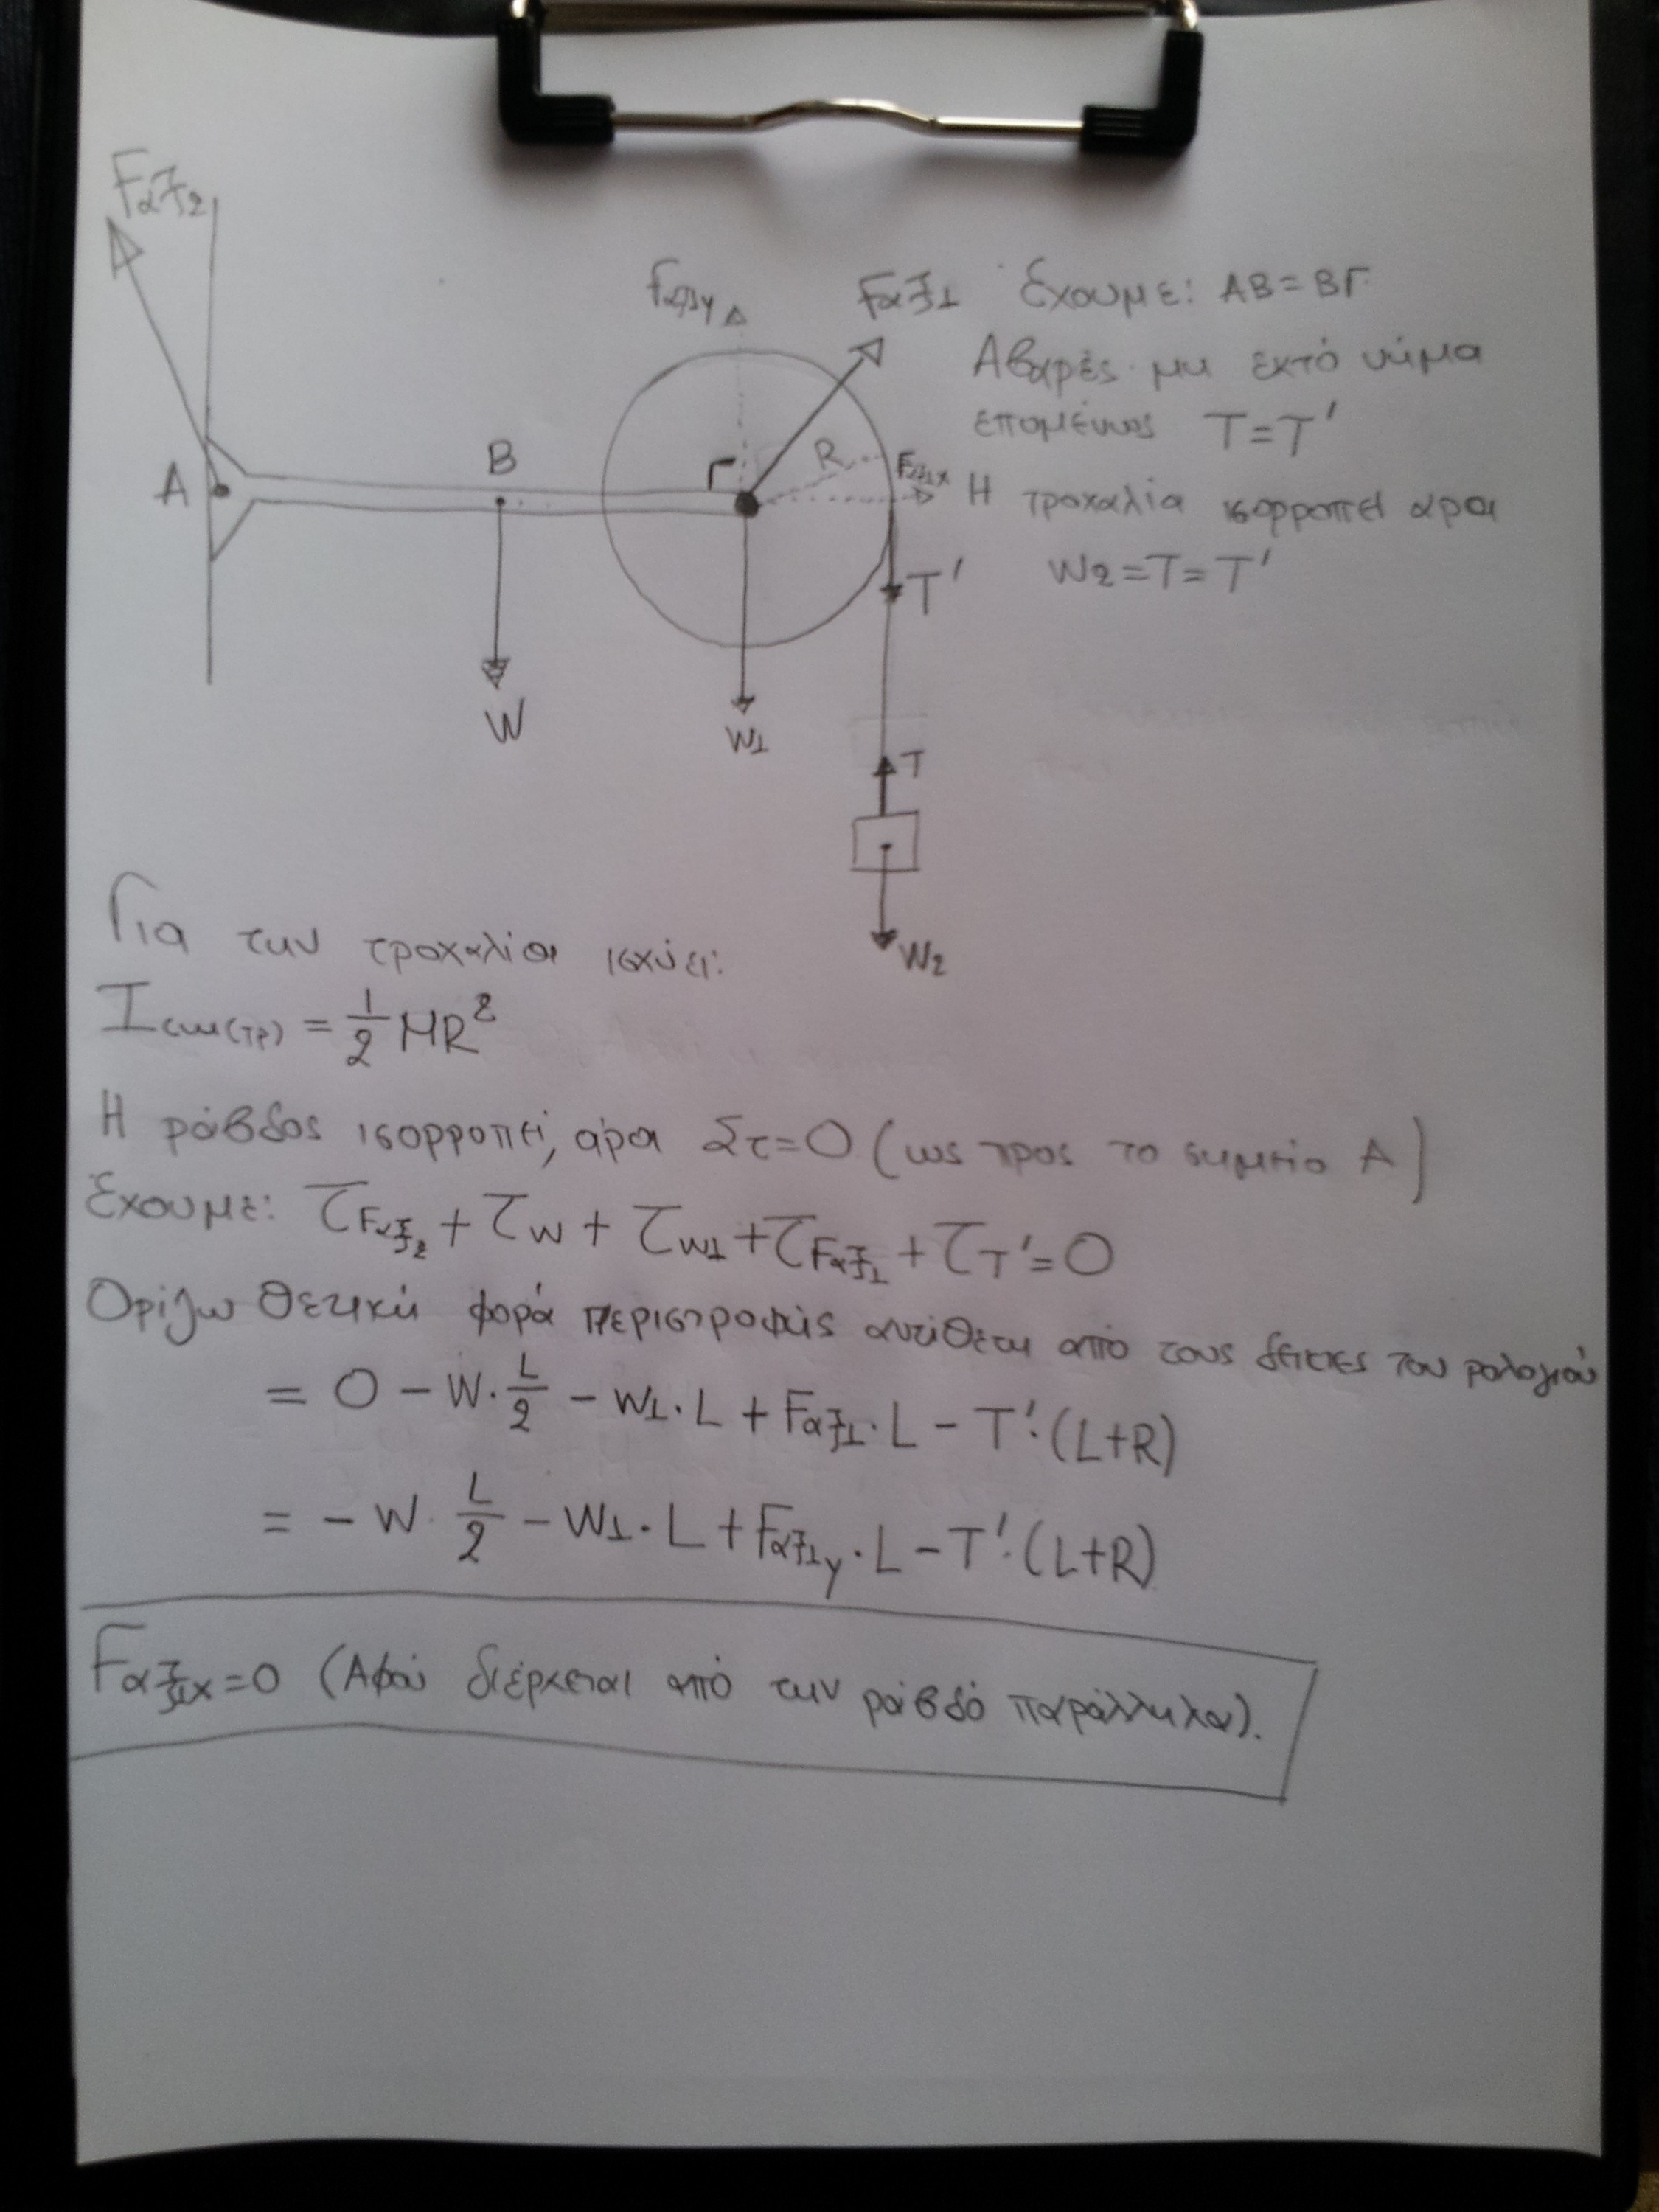 Fαξ2
Fαξ1y
Fαξ1
Έχουμε: ΑΒ=ΒΓ.
Αβαρές μη εκτό νήμα
επομένως T=T'
B
Γ
R
Fαξ1x
A
Η τροχαλία ισορροπεί άρα
W2=T=T'
T'
W
W1
T
W2
Για την τροχαλία ισχύει:
Icm(τρ) = 1/2 MR²
Η ράβδος ισορροπεί, άρα Στ=0 (ως προς το σημείο Α)
Έχουμε: τFαξ2 + τW + τW1 + τFαξ1 + τT'=0
Ορίζω θετική φορά περιστροφής αντίθετη από τους δείκτες του ρολογιού
= 0 - W·L/2 - W1·L + Fαξ1·L - T'·(L+R)
= - W·L/2 - W1·L + Fαξ1y·L - T'·(L+R)
Fαξ1x=0 (Αφού διέρχεται από την ράβδό παράλληλα).